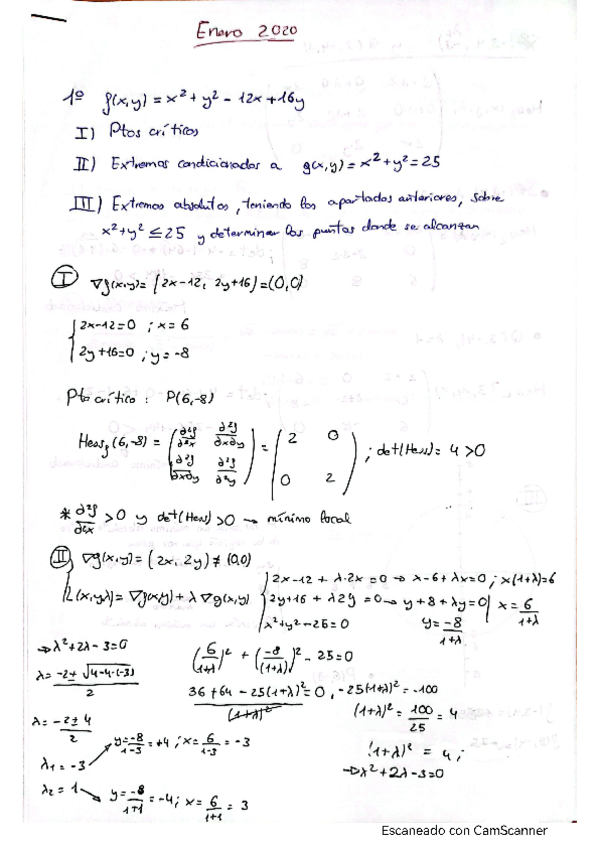 Enero 2020
1º f(x,y) = x² + y² - 12x + 16y
I) Ptos críticos
II) Extremos condicionados a g(x,y) = x² + y² = 25
III) Extremos absolutos, teniendo los apartados anteriores, sobre
x² + y² ≤ 25 y determinar los puntos donde se alcanzan
I ∇f(x,y) = (2x-12, 2y+16) = (0,0)
{ 2x-12=0 ; x = 6
2y+16=0 ; y = -8
Pto crítico : P(6,-8)
Hess_f (6,-8) = ( ∂²f/∂²x ∂²f/∂x∂y ; ∂²f/∂x∂y ∂²f/∂²y ) = ( 2 0 ; 0 2 ) ; det(Hess) = 4 > 0
* ∂²f/∂²x > 0 y det(Hess) > 0 → mínimo local
II ∇g(x,y) = (2x, 2y) ≠ (0,0)
L(x,y,λ) = ∇f(x,y) + λ ∇g(x,y)
{ 2x-12 + λ·2x = 0 → x-6+λx=0 ; x(1+λ)=6
2y+16 + λ2y = 0 → y+8+λy=0 | x = 6/(1+λ)
x²+y²-25=0 y = -8/(1+λ)
(6/(1+λ))² + (-8/(1+λ))² - 25 = 0
(36 + 64 - 25(1+λ)²)/(1+λ)² = 0 , -25(1+λ)² = -100
(1+λ)² = 100/25 = 4
(1+λ)² = 4 ;
→ λ²+2λ-3=0
→ λ²+2λ-3=0
λ = (-2 ± √(4-4·(-3)))/2
λ = (-2 ± 4)/2
λ₁ = -3 → y = -8/(1-3) = +4 ; x = 6/(1-3) = -3
λ₂ = 1 → y = -8/(1+1) = -4 ; x = 6/(1+1) = 3
Escaneado con CamScanner